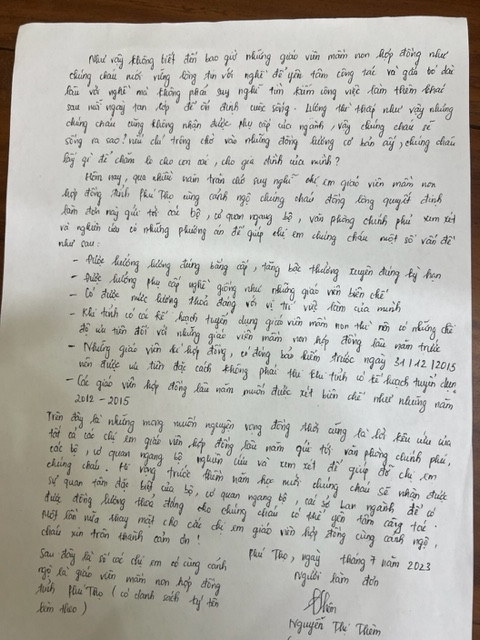 Như vậy không biết đến bao giờ những giáo viên mầm non hợp đồng như
chúng cháu mới vững lòng tin với nghề để yên tâm công tác và gắn bó dài
lâu với nghề mà không phải suy nghĩ tìm kiếm công việc làm thêm khác
sau mỗi ngày tan lớp để ổn định cuộc sống. Lương thì thấp như vậy nhưng
chúng cháu cũng không nhận được phụ cấp của ngành, vậy chúng cháu sẽ
sống ra sao? nếu chỉ trông chờ vào những đồng lương cơ bản ấy, chúng cháu
lấy gì để chăm lo cho con cái, cho gia đình của mình?
Hôm nay, qua nhiều năm trăn trở suy nghĩ chị em giáo viên mầm non
hợp đồng tỉnh Phú Thọ cùng cảnh ngộ chúng cháu đồng lòng quyết định
làm đơn này gửi tới các bộ, cơ quan ngang bộ, văn phòng chính phủ xem xét
và nghiên cứu có những phương án để giúp chị em chúng cháu một số vấn đề
như sau:
- Được hưởng lương đúng bằng cấp, tăng bậc thường xuyên đúng kỳ hạn
- Được hưởng phụ cấp nghề giống như những giáo viên biên chế
- Có được mức lương thoả đáng với vị trí việc làm của mình
- Khi tỉnh có cái kế hoạch tuyển dụng giáo viên mầm non thì nên có những chế
độ ưu tiên đối với những giáo viên mầm non hợp đồng lâu năm
- Những giáo viên ký hợp đồng, có đóng bảo hiểm trước ngày 31/12/2015
nên được ưu tiên đặc cách không phải thi khi tỉnh có kế hoạch tuyển dụng
- Các giáo viên hợp đồng lâu năm muốn được xét biên chế như những năm
2012 - 2015
Trên đây là những mong muốn nguyện vọng đồng thời cũng là lời kêu cứu của
tất cả các chị em giáo viên hợp đồng lâu năm gửi tới văn phòng chính phủ,
các bộ, cơ quan ngang bộ nghiên cứu và xem xét để giúp đỡ chị em
chúng cháu. Hi vọng trước thềm năm học mới chúng cháu sẽ nhận được
sự quan tâm đặc biệt của bộ, cơ quan ngang bộ, các sở ban ngành để có
được đồng lương thoả đáng cho chúng cháu có thể yên tâm công tác.
Một lần nữa thay mặt cho các chị em giáo viên hợp đồng cùng cảnh ngộ,
cháu xin trân thành cảm ơn!
Phú Thọ, ngày tháng 7 năm 2023
Sau đây là số các chị em có cùng cảnh
Người làm đơn
ngộ là giáo viên mầm non hợp đồng
tỉnh Phú Thọ (có danh sách ký tên
kèm theo)
Nguyễn Thị Thêm